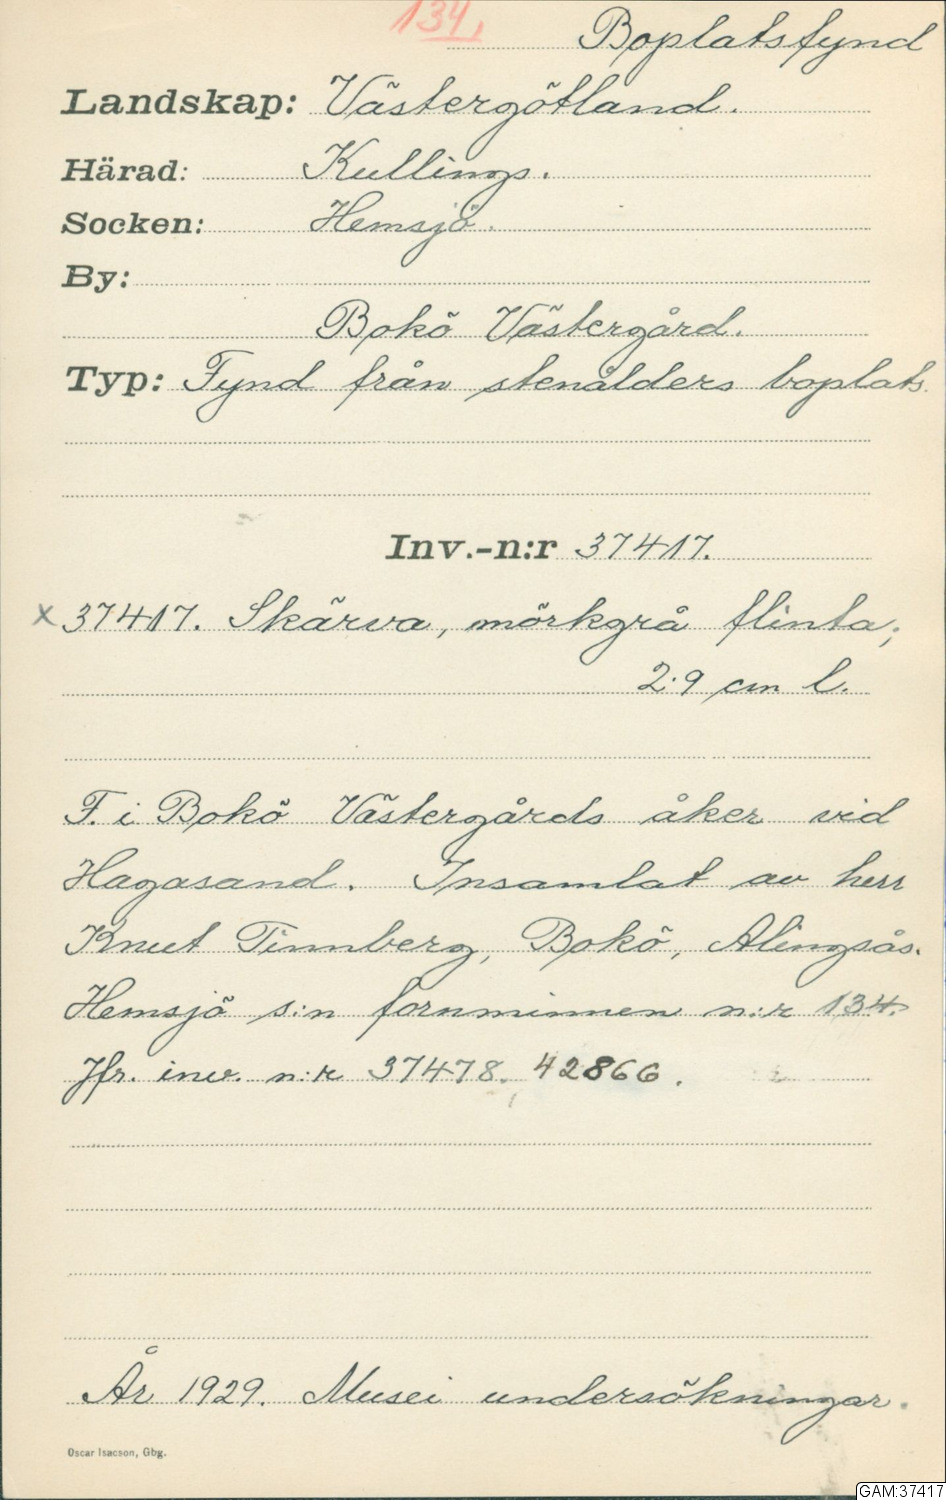 134.
Boplatsfynd
Landskap: Västergötland.
Härad: Kullings.
Socken: Hemsjö.
By:
Bokö Västergård.
Typ: Fynd från stenålders boplats.
Inv.-n:r 37417.
x 37417. Skärva, mörkgrå flinta;
2.9 cm l.
F. i Bokö Västergårds åker vid
Hagasand. Insamlat av herr
Knut Tinnberg, Bokö, Alingsås.
Hemsjö s:n fornminnen n:r 134.
Jfr. inv. n:r 37478. 42866.
År 1929. Musei undersökningar.
Oscar Isacson, Gbg.
GAM:37417